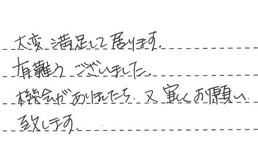 大変満足して居ります.
有難う ございました.
機会がありましたら 又 宜しくお願い
致します.